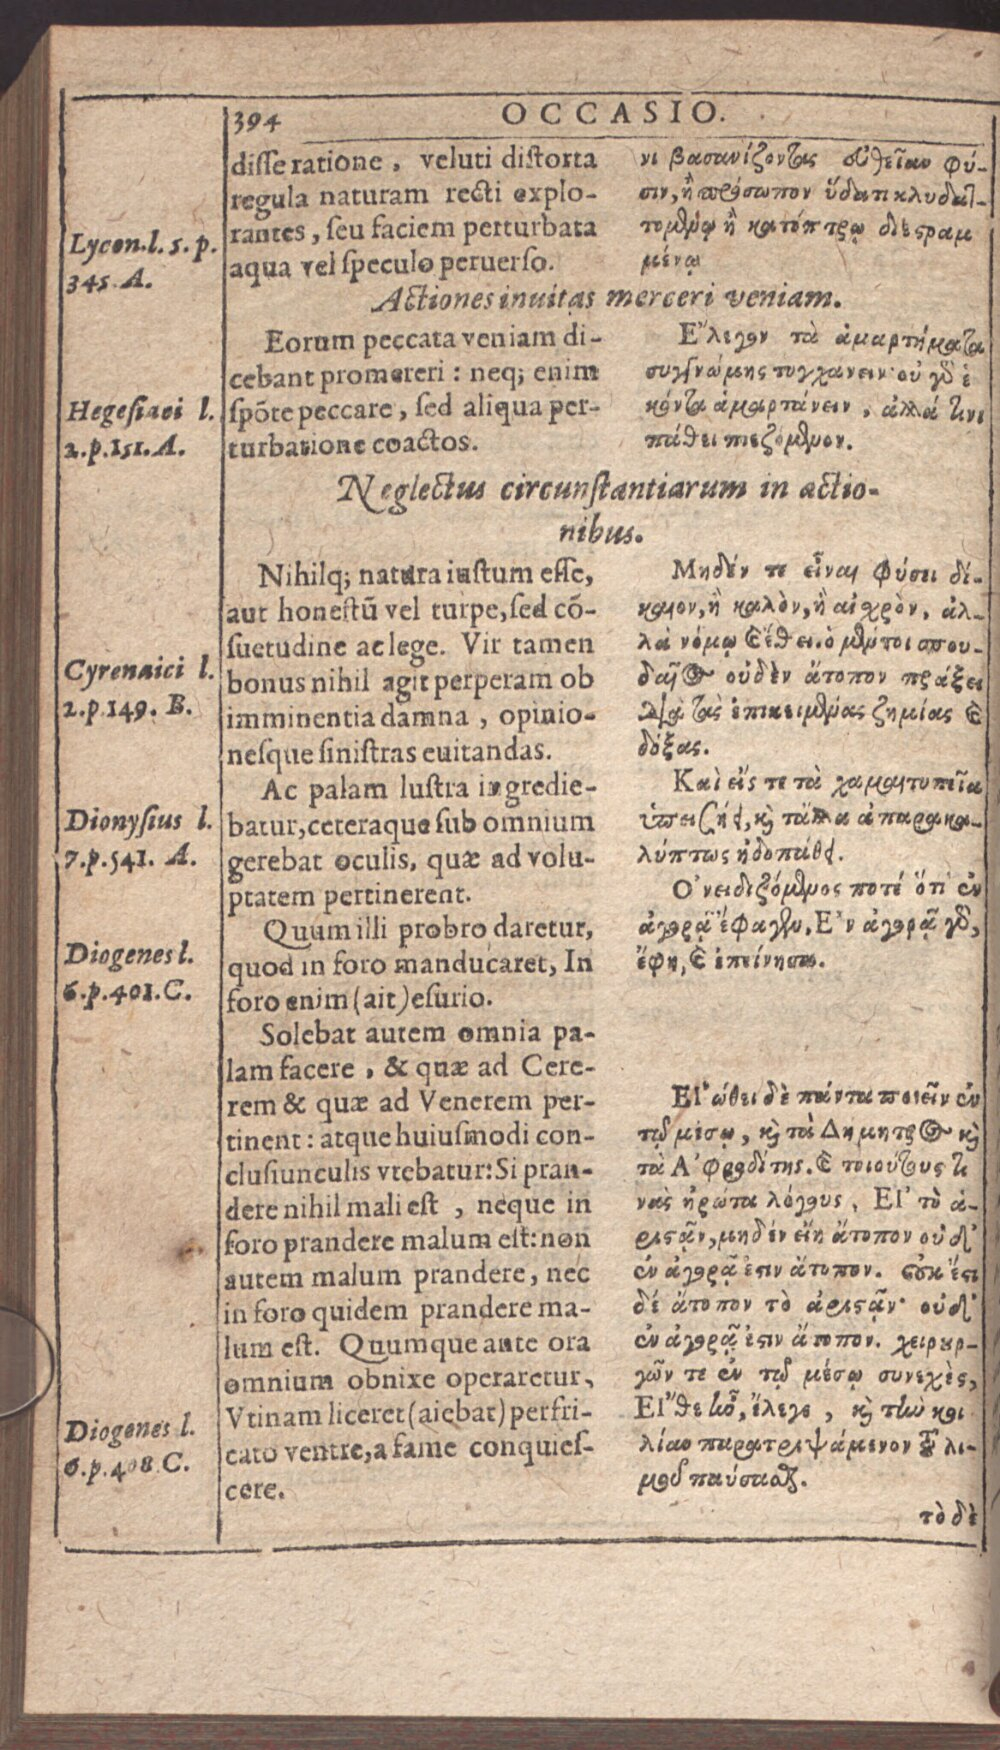 394
OCCASIO.
disse ratione, veluti distorta
regula naturam recti explo-
rantes, seu faciem perturbata
aqua vel speculo peruerso.
Lycon. l. 5. p.
345. A.
νι βασανίζοντας εὐθεῖαν φύ-
σιν, ἢ πρόσωπον ὕδατι κλυδατ-
τομένῳ ἢ κατόπτρῳ διεστραμ
μένῳ
Actiones inuitas merceri veniam.
Eorum peccata veniam di-
cebant promereri: neq; enim
spōte peccare, sed aliqua per-
turbatione coactos.
Hegesiaci l.
2. p. 151. A.
Ἔλεγον τὰ ἁμαρτήματα
συγγνώμης τυγχάνειν· οὐ γὰρ ἑ
κόντα ἁμαρτάνειν, ἀλλά τινι
πάθει πιεζόμενον.
Neglectus circunstantiarum in actio-
nibus.
Nihilq; natura iustum esse,
aut honestū vel turpe, sed cō-
suetudine ac lege. Vir tamen
bonus nihil agit perperam ob
imminentia damna, opinio-
nesque sinistras euitandas.
Cyrenaici l.
2. p. 149. B.
Μηδέν τε εἶναι φύσει δί-
καιον, ἢ καλὸν, ἢ αἰχρὸν, ἀλ-
λὰ νόμῳ καὶ ἔθει. ὁ μέντοι σπου-
δαῖος οὐδὲν ἄτοπον πράξει
διὰ τὰς ἐπικειμένας ζημίας καὶ
δόξας.
Ac palam lustra ingredie-
batur, ceteraque sub omnium
gerebat oculis, quæ ad volu-
ptatem pertinerent.
Dionysius l.
7. p. 541. A.
Καὶ εἴς τε τὰ χαμαιτυπεῖα
ὑπειζήει, καὶ τἄλλα ἀπαρακα-
λύπτως ἡδοπάθει.
Quum illi probro daretur,
quod in foro manducaret, In
foro enim (ait) esurio.
Diogenes l.
6. p. 401. C.
Ὀνειδιζόμενος ποτέ ὅτι ἐν
ἀγορᾷ ἔφαγεν, Ἐν ἀγορᾷ γὰρ,
ἔφη, καὶ ἐπείνησα.
Solebat autem omnia pa-
lam facere, & quæ ad Cere-
rem & quæ ad Venerem per-
tinent: atque huiusmodi con-
clusiunculis vtebatur: Si pran-
dere nihil mali est, neque in
foro prandere malum est: non
autem malum prandere, nec
in foro quidem prandere ma-
lum est. Quumque ante ora
omnium obnixe operaretur,
Vtinam liceret (aiebat) perfri-
cato ventre, a fame conquies-
cere.
Diogenes l.
6. p. 408 C.
Εἰώθει δὲ πάντα ποιεῖν ἐν
τῷ μέσῳ, καὶ τὰ Δήμητρος καὶ
τὰ Ἀφροδίτης. καὶ τοιούτους τι
νὰς ἠρώτα λόγους, Εἰ τὸ ἀ-
ριστᾷν, μηδέν εἴη ἄτοπον οὐδ'
ἐν ἀγορᾷ ἐστιν ἄτοπον. οὐκ ἔστι
δέ ἄτοπον τὸ ἀριστᾷν· οὐδ'
ἐν ἀγορᾷ ἐστιν ἄτοπον. χειρουρ-
γῶν τε ἐν τῷ μέσῳ συνεχὲς,
Εἴθε ἦν, ἔλεγε, καὶ τὴν κοι
λίαν παρατριψάμενον τοῦ λι-
μοῦ παύσασθαι.
τὸ δὲ